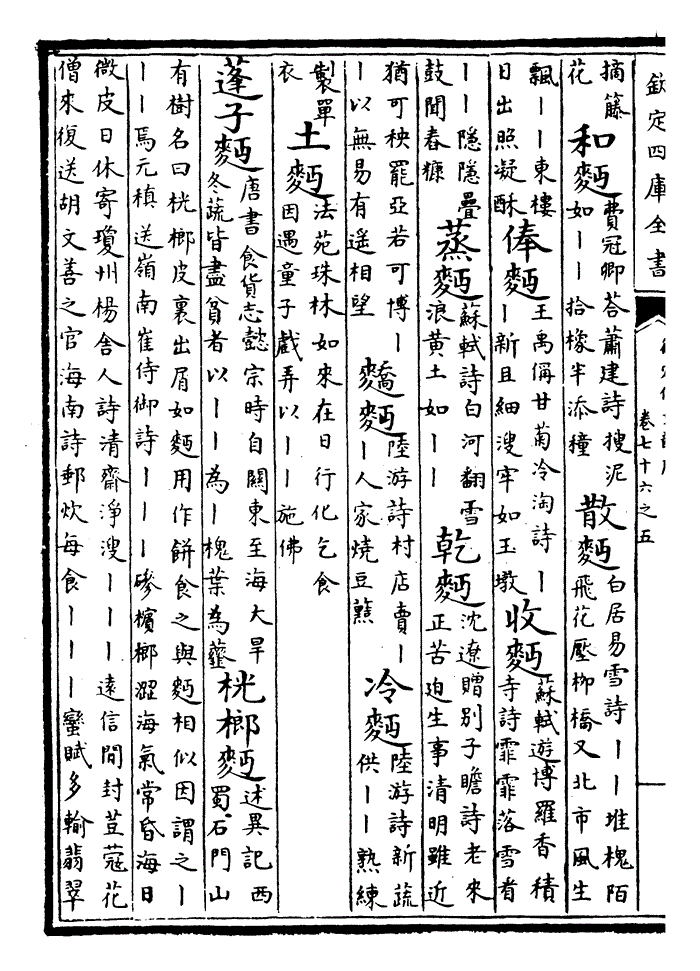 欽定四庫全書
卷七十六之五
摘籐
花
和麪
費冠卿荅蕭建詩搜泥
如丨丨拾橡半添穜
散麪
白居易雪詩丨丨堆槐陌
飛花壓栁橋又北市風生
飄丨丨東樓
日出照凝酥
俸麪
王禹偁甘菊冷淘詩丨
丨新且細溲牢如玉墩
收麪
蘇軾遊博羅香積
寺詩霏霏落雪看
丨丨隱隱疊
鼓聞舂糠
蒸麪
蘇軾詩白河翻雪
浪黄土如丨丨
乾麪
沈遼贈別子瞻詩老來
正苦迫生事清明雖近
猶可秧罷亞若可博丨
丨以無易有遥相望
麪
陸游詩村店賣丨
丨人家燒豆
冷麪
陸游詩新蔬
供丨丨熟練
製單
衣
土麪
法苑珠林如來在日行化乞食
因遇童子戲弄以丨丨施佛
蓬子麪
唐書食貨志懿宗時自關東至海大旱
冬蔬皆盡貧者以丨丨為丨槐葉為虀
桄榔麪
述異記西
蜀石門山
有樹名曰桄榔皮裏出屑如麪用作餅食之與麪相似因謂之丨
丨丨焉元稹送嶺南崔侍御詩丨丨丨磣檳榔澀海氣常昏海日
微皮日休寄瓊州楊舍人詩清齋淨溲丨丨丨逺信閒封荳蔻花
僧來復送胡文善之官海南詩郵炊每食丨丨丨蠻賦多輸翡翠